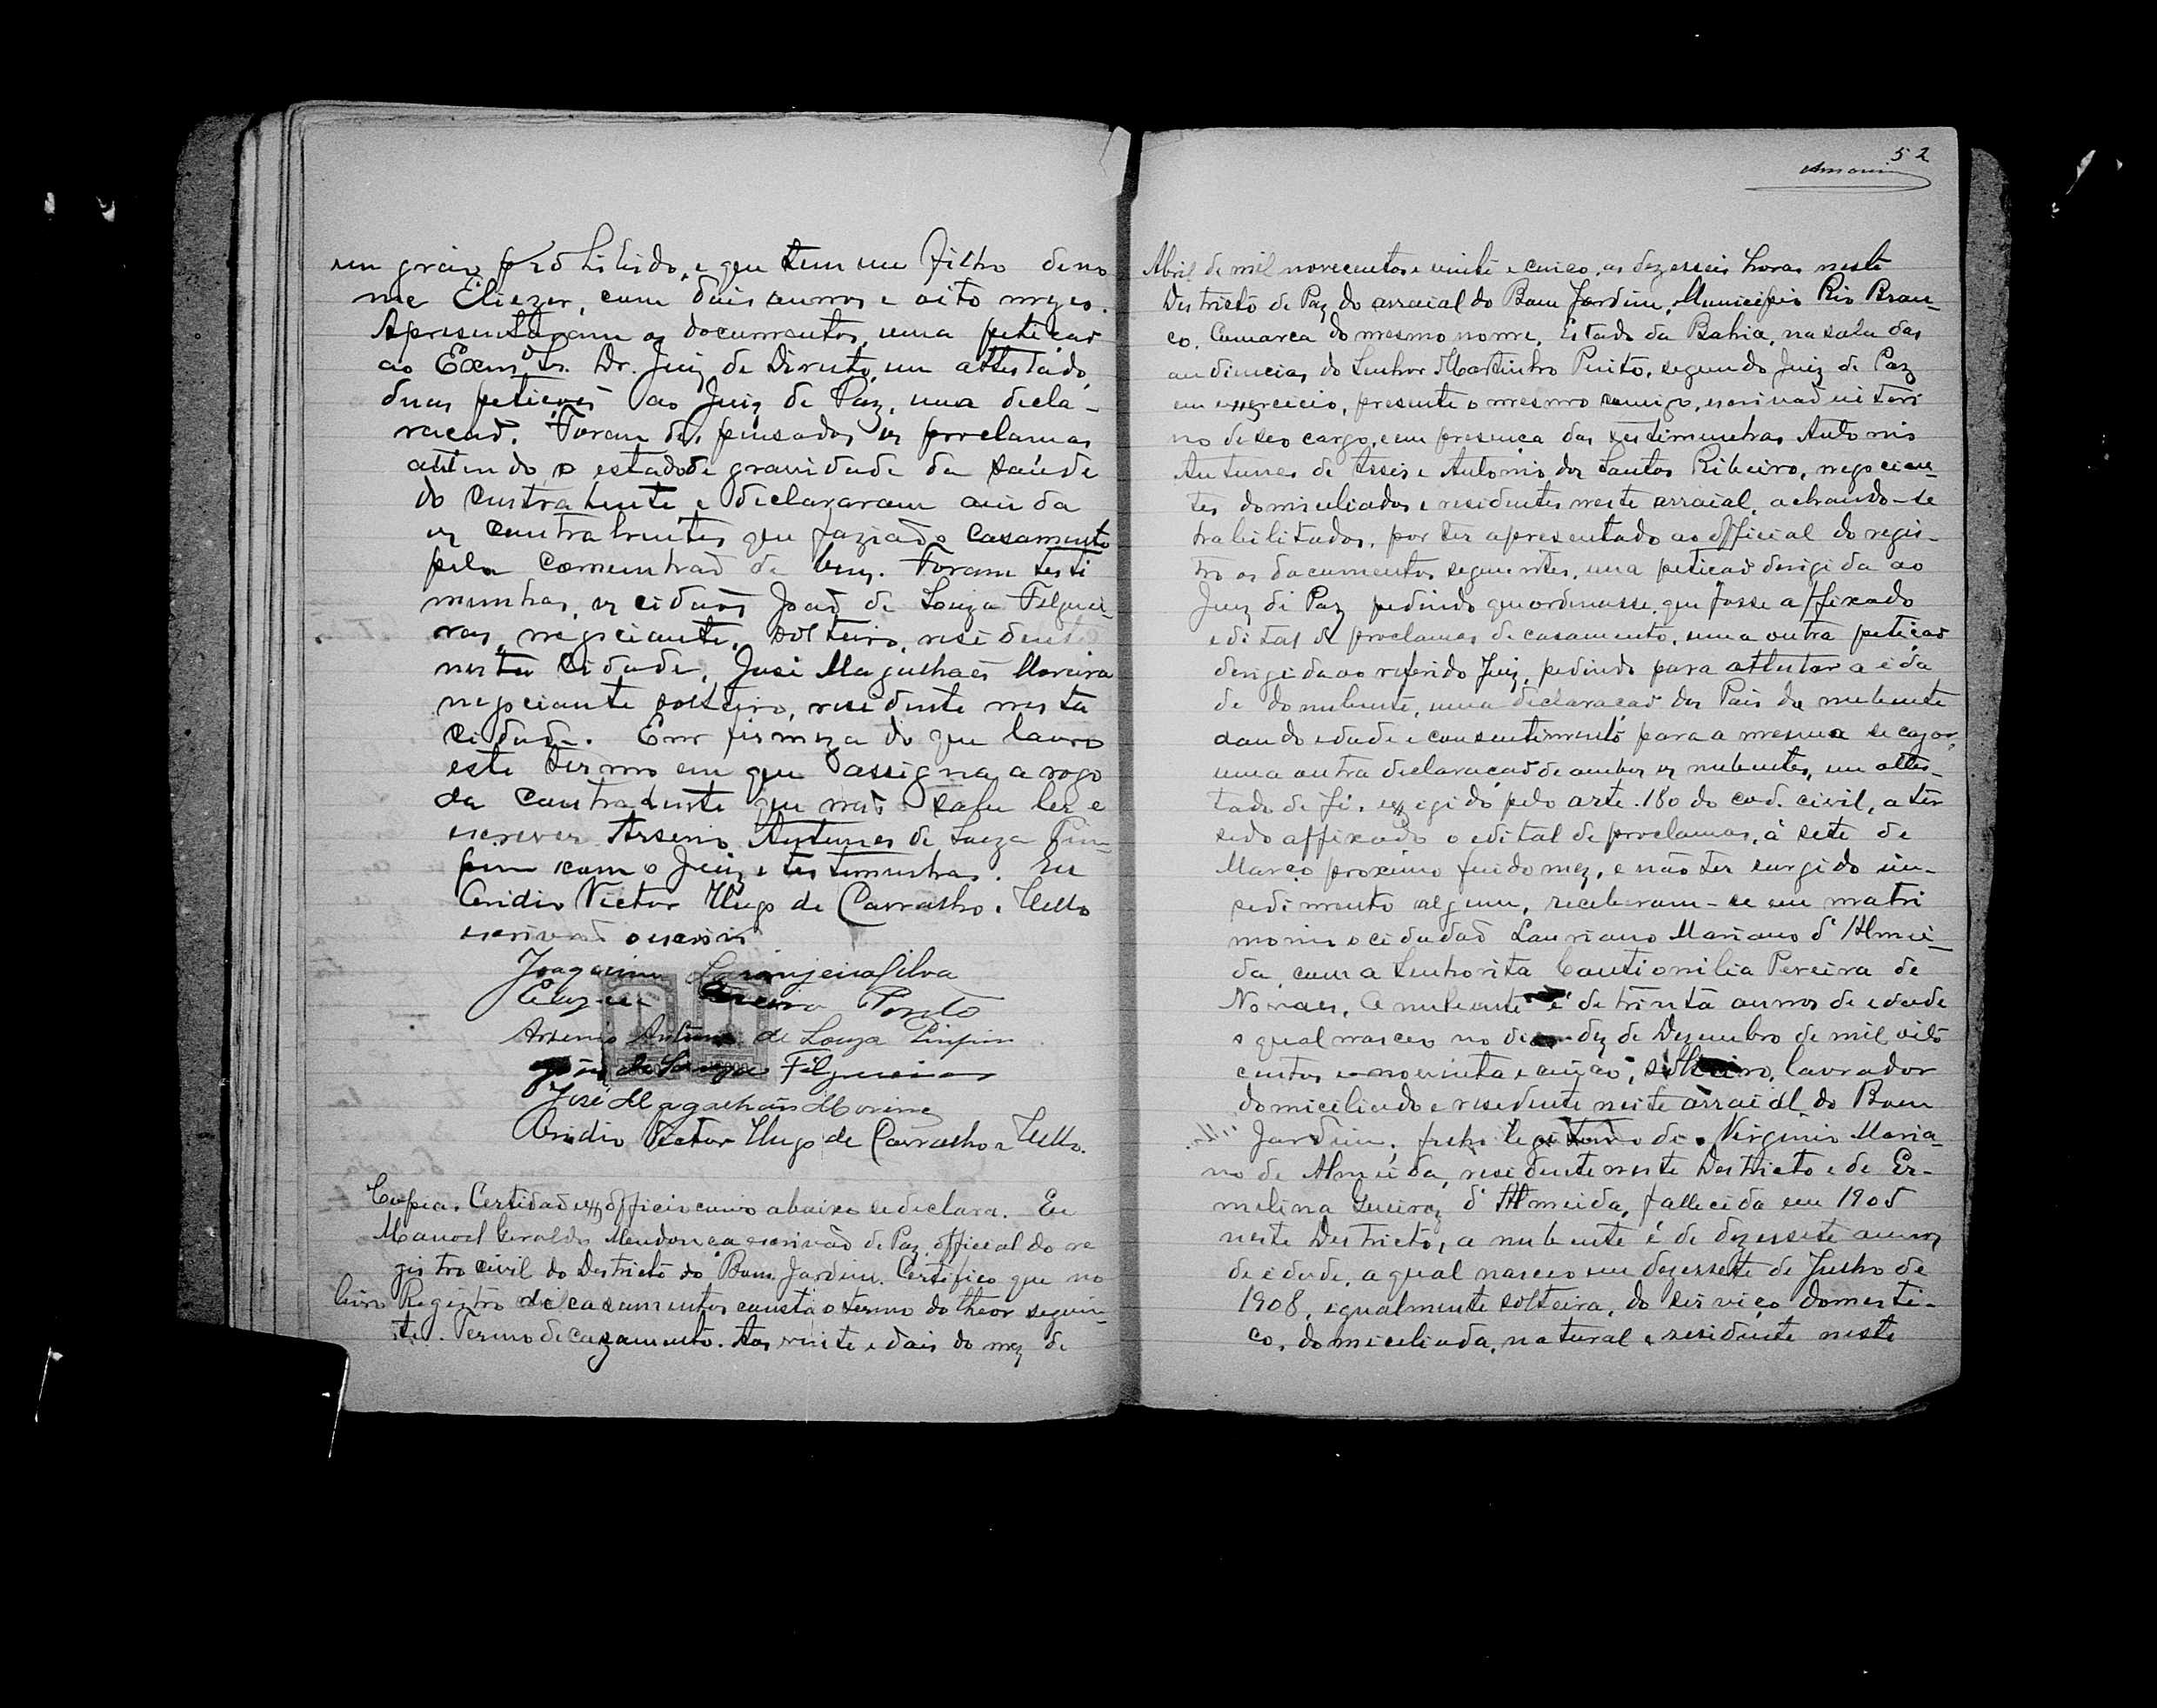 em grau prohibido, e que tem um filho de no
me Eliezer, com dois annos e oito mezes.
Apresentaram os documentos, uma petiçaõ
ao Exmº Sr. Dr. Juiz de Direito, um attestado,
duas petiçoẽs ao Juiz de Paz, uma decla-
raçaõ. Foram despensados os proclamas
attendo o estado de gravidade da saúde
do contrahente e declararam ainda
os contrahentes que faziaõ o casamento
pela comunhaõ de bens. Foram testi
munhas, os cidaõs Joaõ de Souza Filguei-
ras, negociante, solteiro, residente
nesta cidade, José Magalhaẽs Moreira
negociante solteiro, residente nesta
cidade. Em firmeza do que lavro
este termo em que assigna a rogo
da contrahente que naõ sabe ler e
escrever Arsenio Antunes de Souza Pim-
pim com o Juiz e testimunhas. Eu
Victor Hugo de Carvalho e Mello
escrivaõ o escrevi
Joaquim Laranjeira Silva
Porto
Arsenio Antunes de Souza Pimpim
João de Souza Filgueiras
José Magalhães Moreira
Victor Hugo de Carvalho e Mello.
Copia. Certidaõ ex officio como abaixo se declara. Eu
Manoel Geraldo Mendonça escrivaõ de Paz, official do re
gistro civil do Destricto do Bom Jardim. Certifico que no
livro Registro de casamentos consta o termo do theor seguin-
te. Termo de cazamento. Aos vinte e dois do mez de
52
Amorim
Abril de mil novecentos e vinte e cinco, as dezesseis horas neste
Destricto de Paz do arraial do Bom Jardim, Municipio Rio Bran-
co, Comarca do mesmo nome, Estado da Bahia, na sala das
audiencias do Senhor Martinho Pinto, segundo Juiz de Paz
em exercicio, presente o mesmo comigo, escrivaõ interi
no de seo cargo, e em presença das testimunhas Antonio
Antunes de Assis e Antonio dos Santos Ribeiro, negocian-
tes domiciliados e residentes neste arraial, achando-se
habilitados, por ter apresentado ao official do regis-
tro os documentos seguintes, uma petiçaõ dirigida ao
Juiz de Paz pedindo que ordenasse que fosse affixado
editas de proclamas de casamento, uma outra petiçaõ
dirigida ao referido Juiz, pedindo para attestar a eda
de do nubente, uma declaraçaõ dos Pais da nubente
dando edade e consentimento para a mesma se cazar,
uma outra declaraçaõ de ambos os nubentes, um attes-
tado de fé, exegido pelo arte. 180 do cod. civil, a ter
sedo affixado o edital de proclamas, á sete de
Março proximo findo mez, e não ter surgido im-
pedimento algum, receberam-se em matri
monio o cidadaõ Lauriano Mariano d'Almei-
da, com a Senhorita Cantionilia Pereira de
Novaes. O nubente é de trinta annos de edade
o qual nasceo no dia dez de Dezembro de mil oito
centos e noventa e cinco, solteiro, lavrador
domiciliado e residente neste arraial do Bom
Jardim, filho legitimo de Virginio Maria-
no de Almeida, residente neste Destricto e de Er-
melina Queiroz d'Almeida, fallecida em 1905
neste Destricto, a nubente é de dezessete annos
de edade, a qual nasceo em dezessette de Julho de
1908, egualmente solteira, do serviço domesti-
co, domiciliada, natural e residente neste